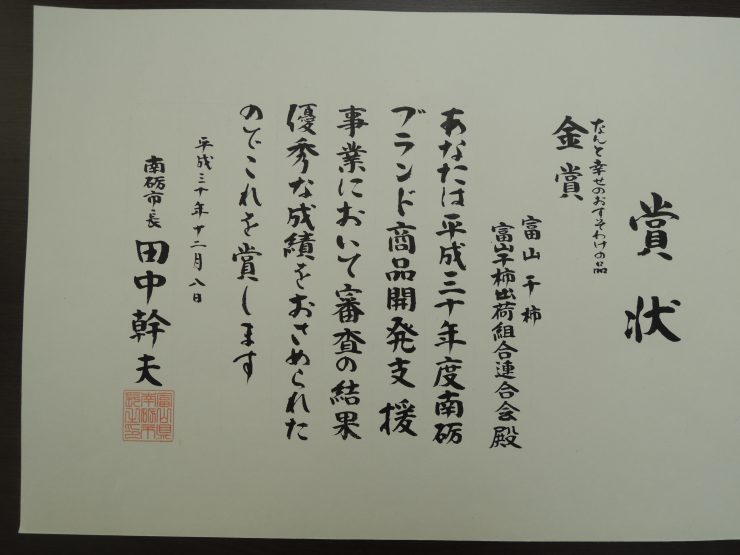 賞状
なんと幸せのおすそわけの品
金賞
富山干柿
富山干柿出荷組合連合会殿
あなたは平成三十年度南砺
ブランド商品開発支援
事業において審査の結果
優秀な成績をおさめられた
のでこれを賞します
平成三十年十二月八日
南砺市長 田中幹夫
富山県
南砺市
長之印